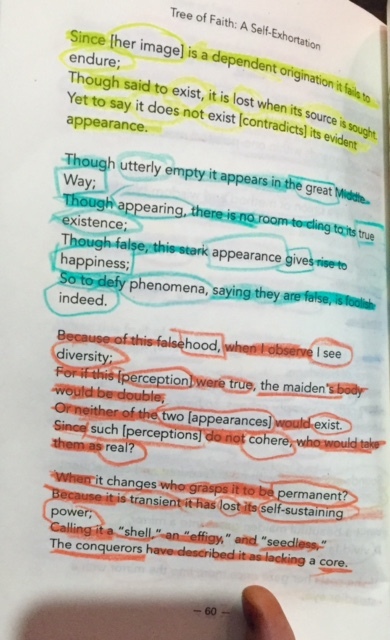 Tree of Faith: A Self-Exhortation
Since [her image] is a dependent origination it fails to
endure;
Though said to exist, it is lost when its source is sought
Yet to say it does not exist [contradicts] its evident
appearance.
Though utterly empty it appears in the great Middle
Way;
Though appearing, there is no room to cling to its true
existence;
Though false, this stark appearance gives rise to
happiness;
So to defy phenomena, saying they are false, is foolish
indeed.
Because of this falsehood, when I observe I see
diversity;
For if this [perception] were true, the maiden's body
would be double,
Or neither of the two [appearances] would exist.
Since such [perceptions] do not cohere, who would take
them as real?
When it changes who grasps it to be permanent?
Because it is transient it has lost its self-sustaining
power;
Calling it a "shell," an "effigy," and "seedless,"
The conquerors have described it as lacking a core.
— 60 —